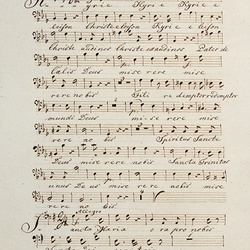 Kyrie Kyrie e
leison Christe eleison Kyrie e leison
Christe audinos Christe exaudinos Pater de
Caelis Deus mise rere mise
rere nobis Fili redemptor redemptor
mundi Deus mi-se rere mise
rere no bis Spiritus Sancte
Deus mise rere nobis Sancta Trinitas
unus De us mise rere nobis mise
rere no bis.
Allegro
Sancta Maria ora pro nobis